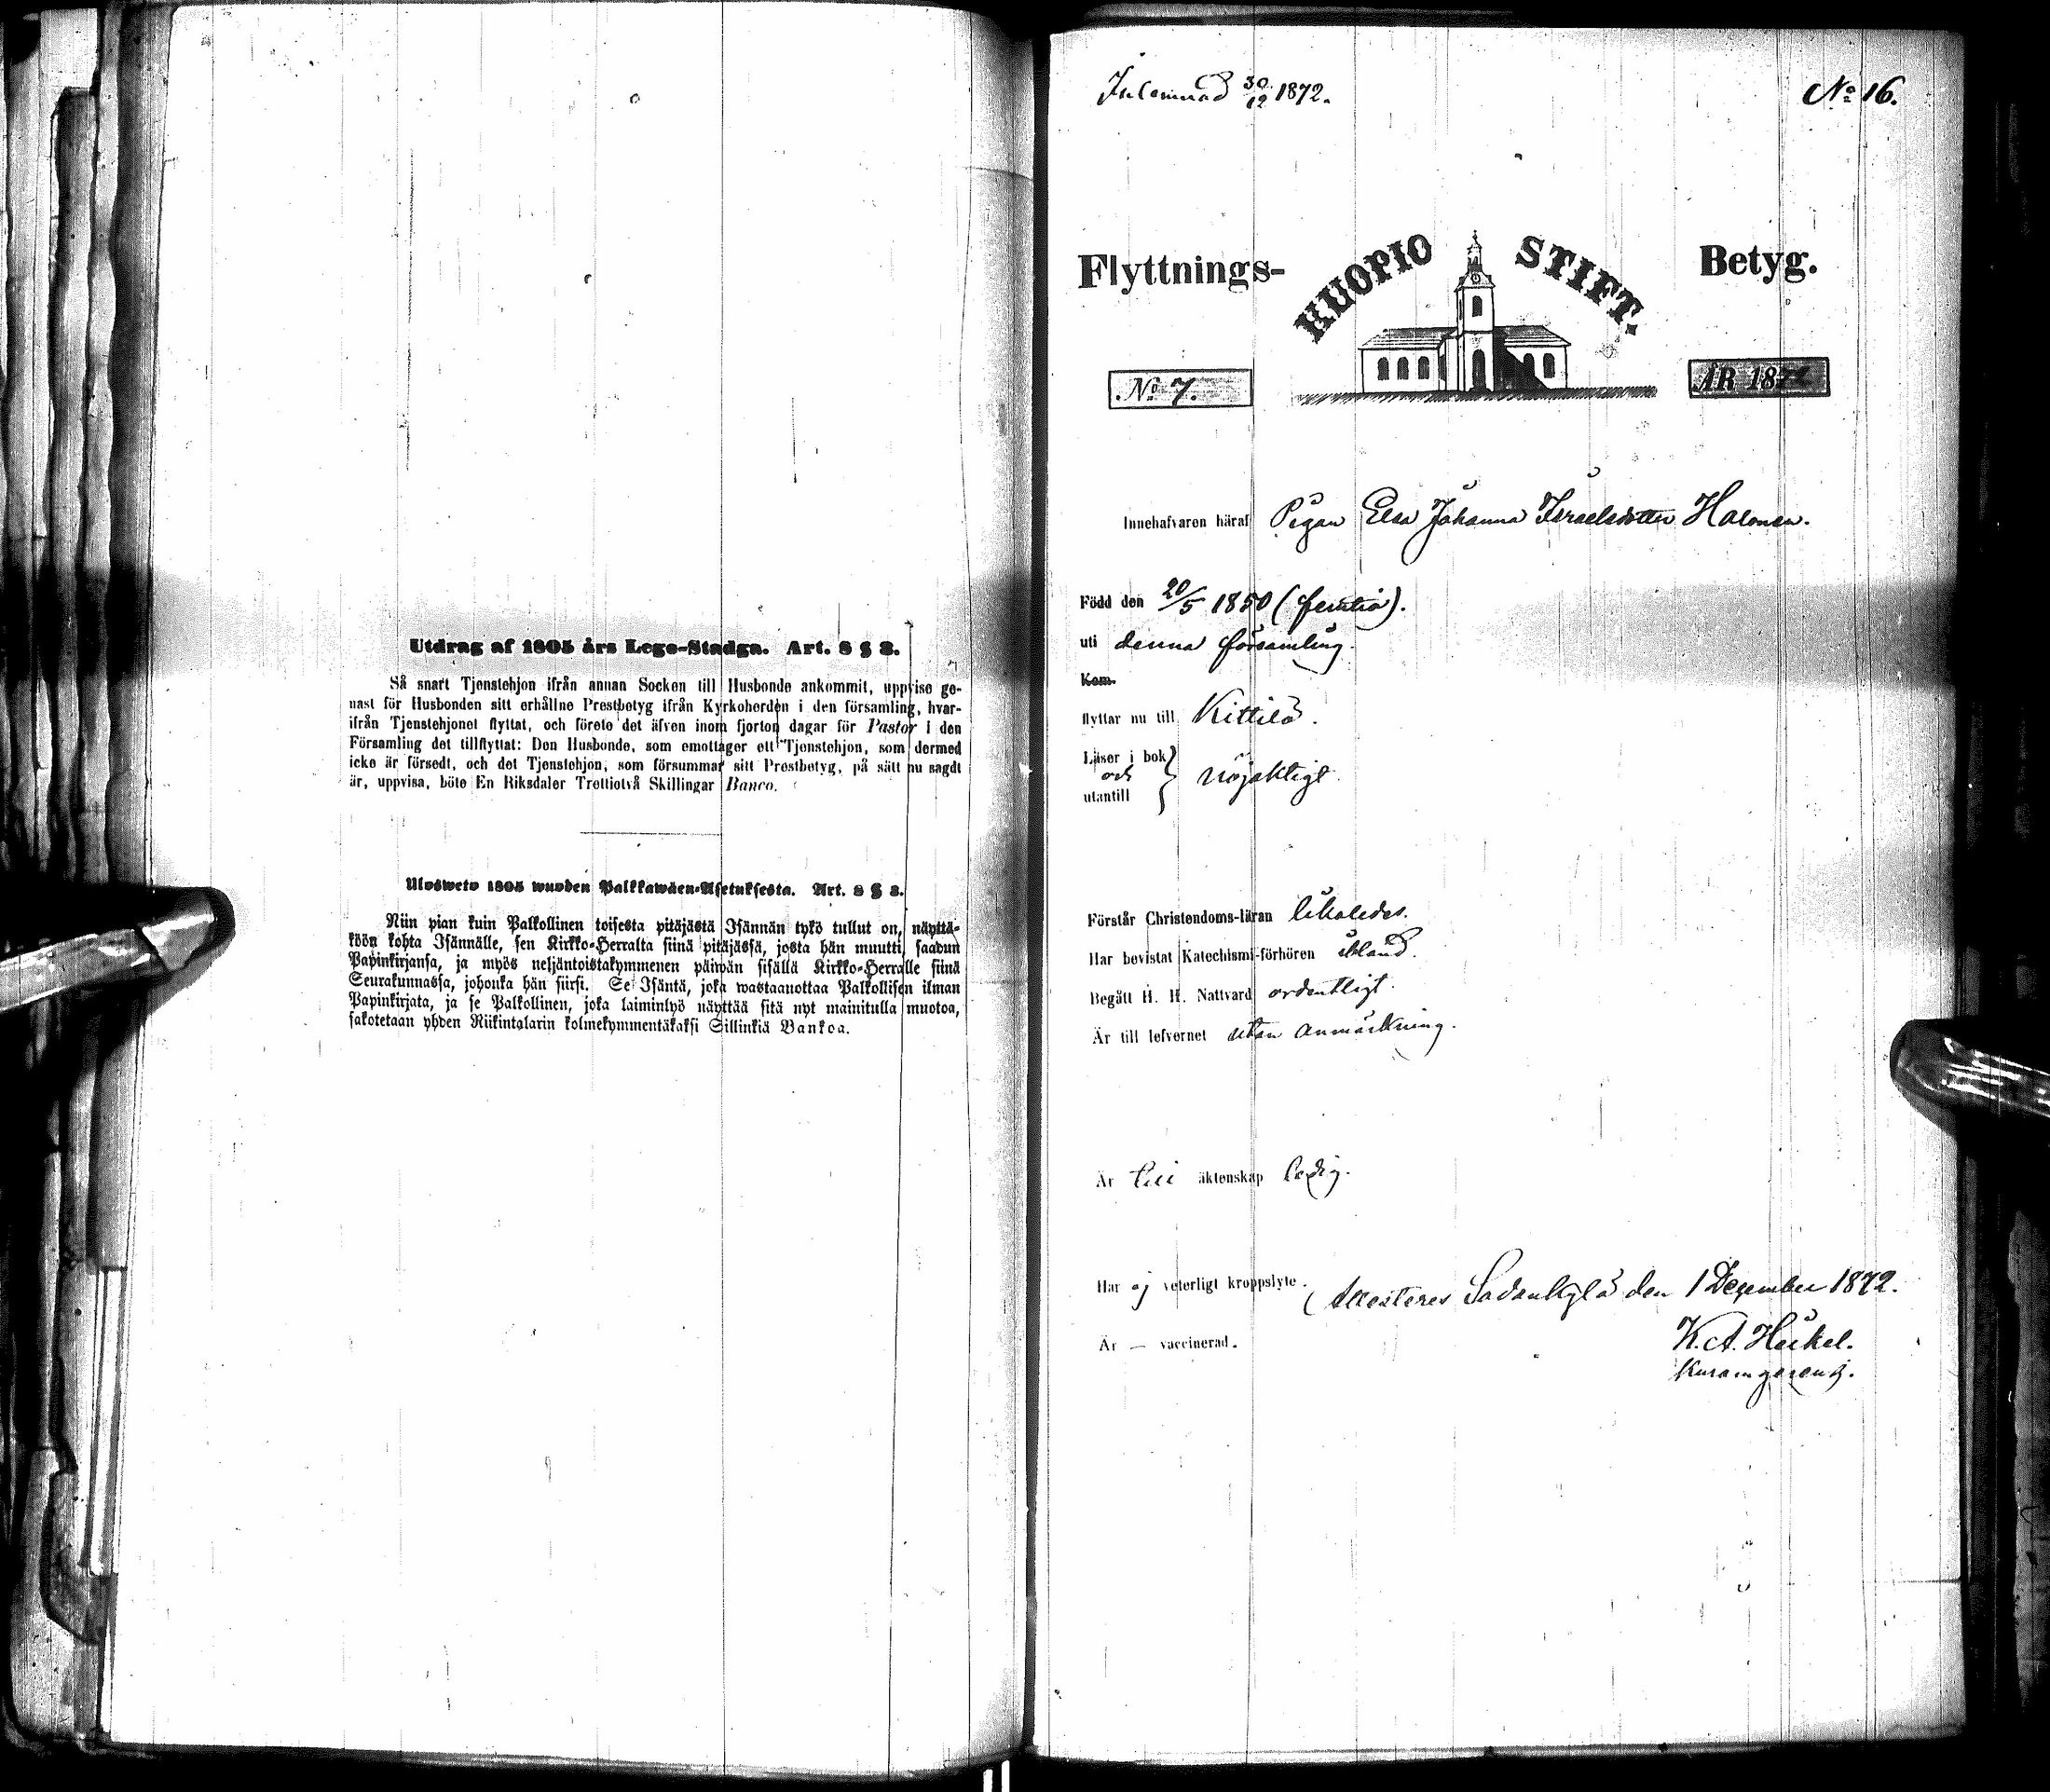 Utdrag af 1805 års Lego-Stadga. Art. 8 § 8.
Så snart Tjenstehjon ifrån annan Socken till Husbonde ankommit, uppvise ge-
nast för Husbonden sitt erhållne Prestbetyg ifrån Kyrkoherden i den församling, hvar-
ifrån Tjenstehjonet flyttat, och förete det äfven inom fjorton dagar för Pastor i den
Församling det tillflyttat: Den Husbonde, som emottager ett Tjenstehjon, som dermed
icke är försedt, och det Tjenstehjon, som försummar sitt Prestbetyg, på sätt nu sagdt
är, uppvisa, böte En Riksdaler Trettiotvå Skillingar Banco.
Ulosweto 1805 wuoden Palkkawäen-Asetuksesta. Art. 8 § 8.
Niin pian kuin Palkollinen toisesta pitäjästä Isännän tykö tullut on, näyttä-
köön kohta Isännälle, sen Kirkko-Herralta siinä pitäjässä, josta hän muutti, saadun
Papinkirjansa, ja myös neljäntoistakymmenen päiwän sisällä Kirkko-Herralle siinä
Seurakunnassa, johonka hän siirsi. Se Isäntä, joka wastaanottaa Palkollisen ilman
Papinkirjata, ja se Palkollinen, joka laiminlyö näyttää sitä nyt mainitulla muotoa,
sakotetaan yhden Riikintalarin kolmekymmentäkaksi Sillinkiä Bankoa.
Inlemnad 30/12 1872.
No 16.
Flyttnings- KUOPIO STIFT. Betyg.
No 7.
ÅR 1872
Innehafvaren häraf Pigan Elsa Johanna Israelsdotter Halonen.
Född den 20/5 1850 (femtio).
uti denna församling.
Kom.
flyttar nu till Kittilä.
Läser i bok
och nöjaktigt.
utantill
Förstår Christendoms-läran likaledes.
Har bevistat Katechismi-förhören ibland.
Begått H. H. Nattvard ordentligt.
Är till lefvernet utan anmärkning.
Är till äktenskap ledig.
Har ej veterligt kroppslyte.
Attesteres Sodankylä den 1 December 1872.
Är — vaccinerad.
K. A. Heikel.